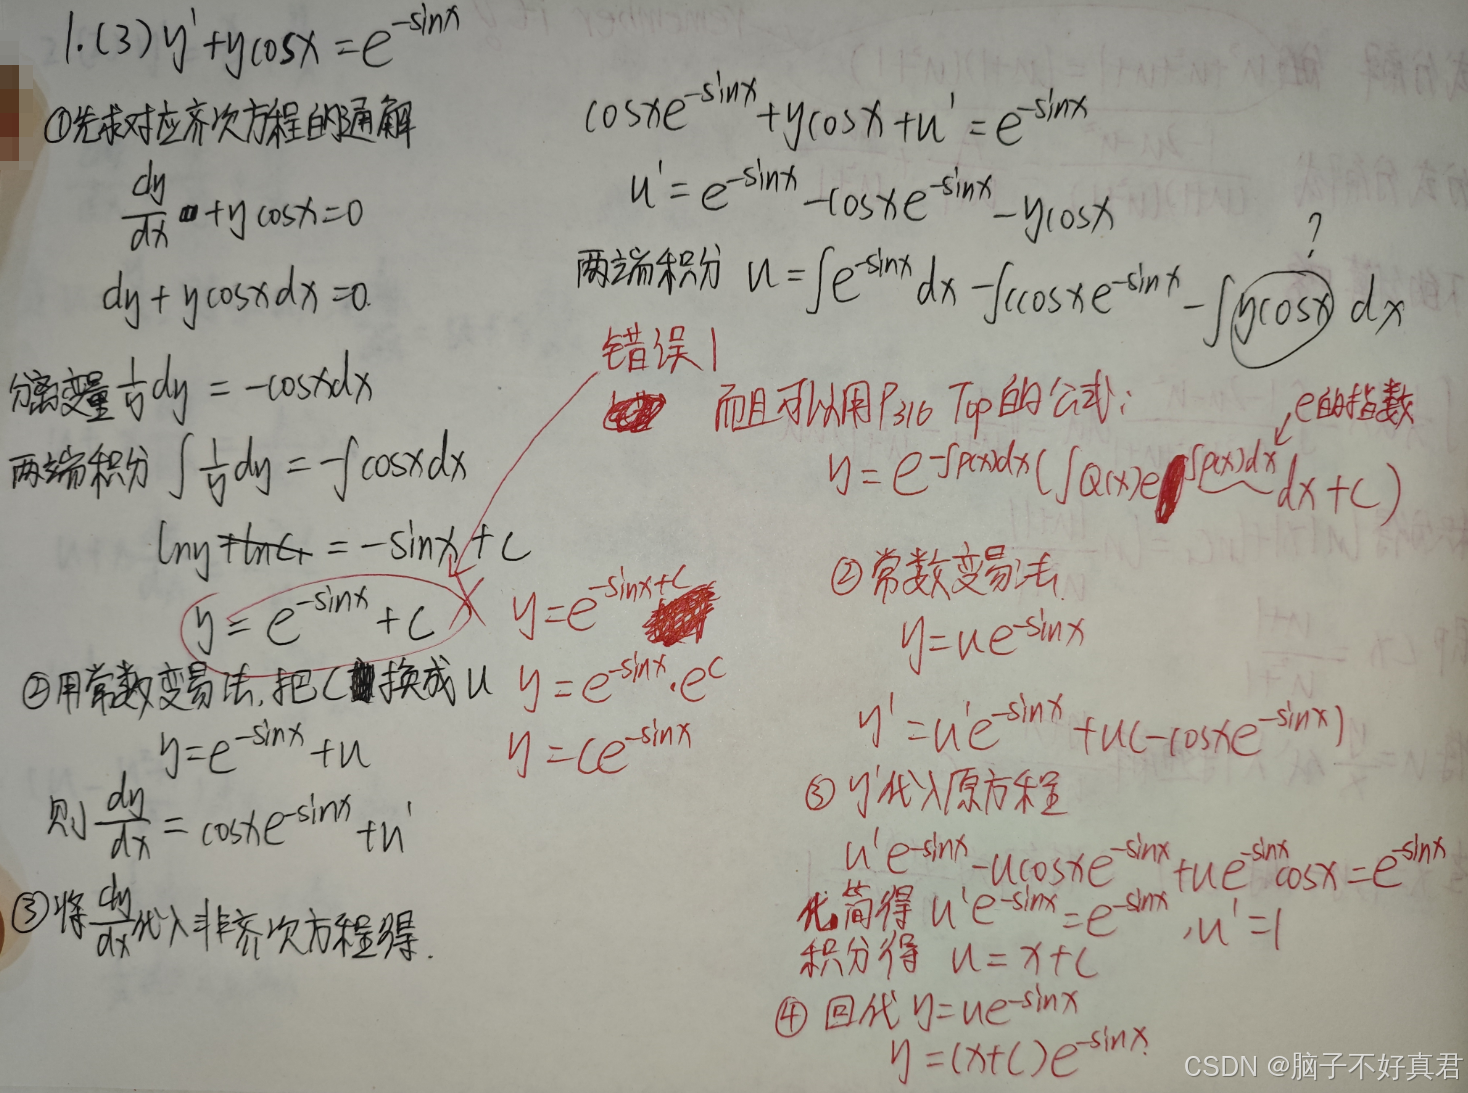 1.(3) y'+ycosx=e^{-sinx}
①先求对应齐次方程的通解
dy/dx +ycosx=0
dy+ycosxdx=0.
分离变量 1/y dy = -cosxdx
两端积分 ∫1/y dy = -∫cosxdx
lny+lnC₁ = -sinx+C
y=e^{-sinx}+C
②用常数变易法,把C换成u
y=e^{-sinx}+u
则 dy/dx = cosxe^{-sinx}+u'
③将dy/dx代入非齐次方程得.
cosxe^{-sinx}+ycosx+u'=e^{-sinx}
u'=e^{-sinx}-cosxe^{-sinx}-ycosx
?
两端积分 u=∫e^{-sinx}dx-∫cosxe^{-sinx}-∫ycosx dx
错误1
而且可以用P₃₁₆ Top的公式:
e的指数
y=e^{-∫p(x)dx}(∫Q(x)e^{∫p(x)dx}dx+C)
y=e^{-sinx+C}
y=e^{-sinx}·e^C
y=Ce^{-sinx}
②常数变易法
y=ue^{-sinx}
y'=u'e^{-sinx}+u(-cosxe^{-sinx})
③ y'代入原方程
u'e^{-sinx}-ucosxe^{-sinx}+ue^{-sinx}cosx=e^{-sinx}
化简得 u'e^{-sinx}=e^{-sinx},u'=1
积分得 u=x+C
④ 回代 y=ue^{-sinx}
y=(x+C)e^{-sinx}
CSDN @脑子不好真君